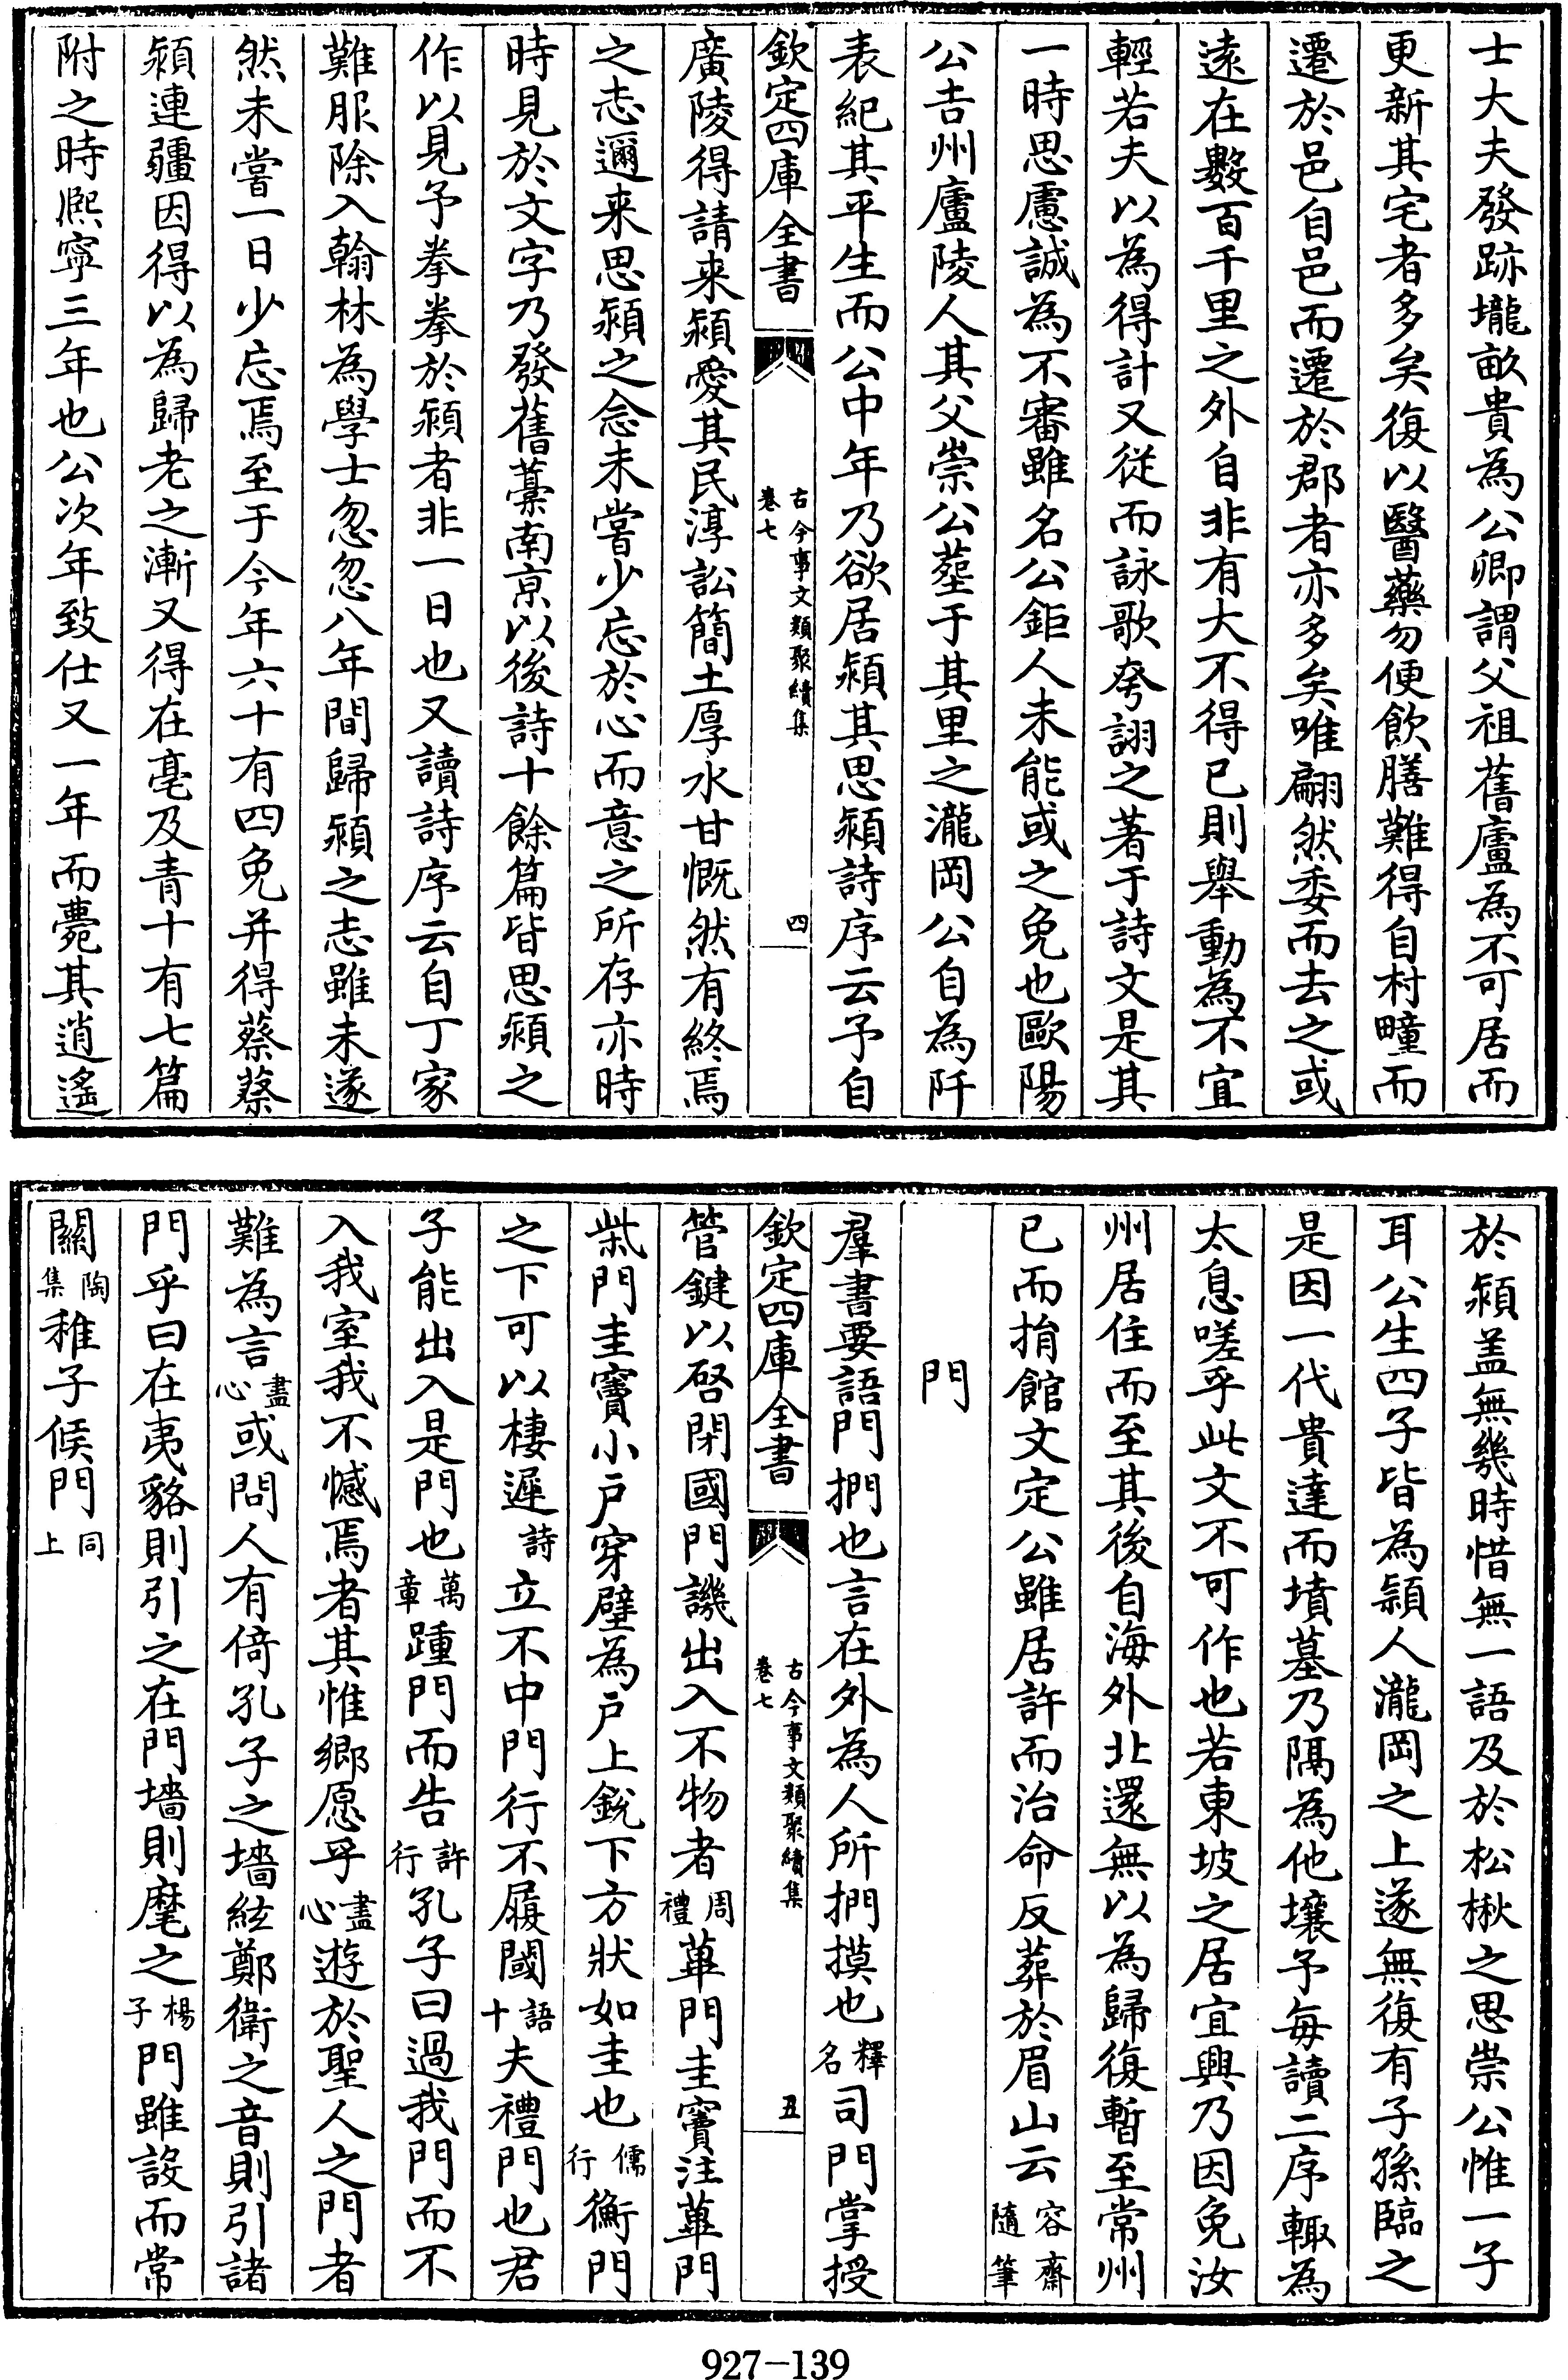 士大夫發跡壠畝貴為公卿謂父祖舊廬為不可居而
更新其宅者多矣復以醫藥勿便飲膳難得自村疃而
遷於邑自邑而遷於郡者亦多矣唯翩然委而去之或
遠在數百千里之外自非有大不得已則舉動為不宜
輕若夫以為得計又從而詠歌夸詡之著于詩文是其
一時思慮誠為不審雖名公鉅人未能或之免也歐陽
公吉州廬陵人其父崇公葬于其里之瀧岡公自為阡
表紀其平生而公中年乃欲居潁其思潁詩序云予自
欽定四庫全書
古今事文類聚續集
卷七
四
廣陵得請来潁愛其民淳訟簡土厚水甘慨然有終焉
之志邇来思潁之念未嘗少忘於心而意之所存亦時
時見於文字乃發舊藁南京以後詩十餘篇皆思潁之
作以見予拳拳於潁者非一日也又讀詩序云自丁家
難服除入翰林為學士忽忽八年間歸潁之志雖未遂
然未嘗一日少忘焉至于今年六十有四免并得蔡蔡
潁連疆因得以為歸老之漸又得在亳及青十有七篇
附之時熈寧三年也公次年致仕又一年而薨其逍遙
於潁盖無幾時惜無一語及於松楸之思崇公惟一子
耳公生四子皆為潁人瀧岡之上遂無復有子孫臨之
是因一代貴達而墳墓乃隔為他壤予每讀二序輙為
太息嗟乎此文不可作也若東坡之居宜興乃因免汝
州居住而至其後自海外北還無以為歸復暫至常州
已而捐館文定公雖居許而治命反葬於眉山云容齋隨筆
門
羣書要語門捫也言在外為人所捫摸也釋名司門掌授
欽定四庫全書
古今事文類聚續集
卷七
五
管鍵以啓閉國門譏出入不物者周禮蓽門圭竇注蓽門
柴門圭竇小户穿壁為户上銳下方狀如圭也儒行衡門
之下可以棲遲詩立不中門行不履閾語十夫禮門也君
子能出入是門也萬章踵門而告許行孔子曰過我門而不
入我室我不憾焉者其惟鄉愿乎盡心遊於聖人之門者
難為言盡心或問人有倚孔子之墻絃鄭衛之音則引諸
門乎曰在夷貉則引之在門墻則麾之楊子門雖設而常
關陶集稚子候門同上
927-139